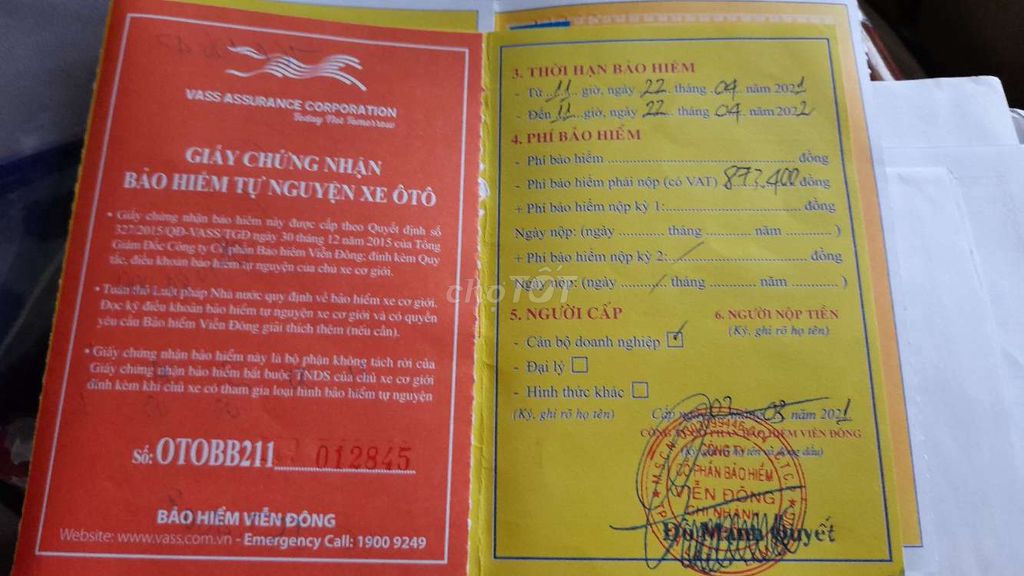 VASS ASSURANCE CORPORATION
Today Not Tomorrow
GIẤY CHỨNG NHẬN
BẢO HIỂM TỰ NGUYỆN XE ÔTÔ
• Giấy chứng nhận bảo hiểm này được cấp theo Quyết định số
327/2015/QĐ-VASS/TGĐ ngày 30 tháng 12 năm 2015 của Tổng
Giám Đốc Công ty Cổ phần Bảo hiểm Viễn Đông; đính kèm Quy
tắc, điều khoản bảo hiểm tự nguyện của chủ xe cơ giới.
• Tuân thủ Luật pháp Nhà nước quy định về bảo hiểm xe cơ giới.
Đọc kỹ điều khoản bảo hiểm tự nguyện xe cơ giới và có quyền
yêu cầu Bảo hiểm Viễn Đông giải thích thêm (nếu cần).
• Giấy chứng nhận bảo hiểm này là bộ phận không tách rời của
Giấy chứng nhận bảo hiểm bắt buộc TNDS của chủ xe cơ giới
đính kèm khi chủ xe có tham gia loại hình bảo hiểm tự nguyện
Số: OTOBB211 012845
BẢO HIỂM VIỄN ĐÔNG
Website: www.vass.com.vn - Emergency Call: 1900 9249
3. THỜI HẠN BẢO HIỂM
- Từ 11 giờ, ngày 22 tháng 04 năm 2021
- Đến 11 giờ, ngày 22 tháng 04 năm 2022
4. PHÍ BẢO HIỂM
- Phí bảo hiểm ........ đồng
- Phí bảo hiểm phải nộp (có VAT) 873.400 đồng
+ Phí bảo hiểm nộp kỳ 1: ........ đồng
Ngày nộp: (ngày ........ tháng ........ năm ........ )
+ Phí bảo hiểm nộp kỳ 2: ........ đồng
Ngày nộp: (ngày ........ tháng ........ năm ........ )
5. NGƯỜI CẤP
6. NGƯỜI NỘP TIỀN
(Ký, ghi rõ họ tên)
- Cán bộ doanh nghiệp ☑
- Đại lý ☐
- Hình thức khác ☐
(Ký, ghi rõ họ tên)
Cấp ngày 02 tháng 03 năm 2021
CÔNG TY CỔ PHẦN BẢO HIỂM VIỄN ĐÔNG
CÔNG TY
CỔ PHẦN BẢO HIỂM
VIỄN ĐÔNG
CHI NHÁNH
Đỗ Mạnh Quyết
chợTỐT